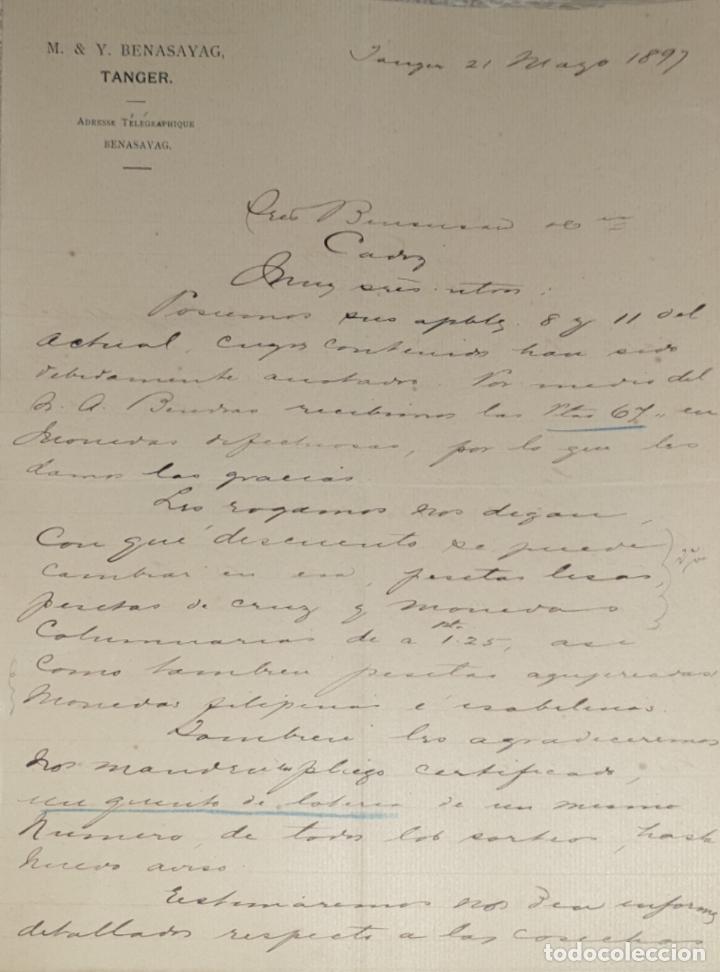 M. & Y. BENASAYAG,
TANGER.
ADRESSE TÉLÉGRAPHIQUE
BENASAYAG.
Tanger 21 Mayo 1897
Sres Bensusan &
Cadiz
Muy sres ntros:
Poseemos sus aptbles. 8 y 11 del
actual, cuyos contenidos han sido
debidamente anotados. Por medio del
S. A. Bendrao recibimos las Ptas 67,, en
monedas defectuosas, por lo que les
damos las gracias.
Les rogamos nos digan,
Con qué descuento se puede
cambiar en esa, pesetas lisas,
pesetas de cruz y monedas
Columnarias de a Pta 1.25, asi
Como tambien pesetas agujereadas
Monedas filipinas é isabelinas.
Tambien les agradeceremos
nos manden en pliego certificado,
un quinto de loteria de un mismo
Numero, de todos los sorteos, hasta
nuevo aviso.
Estimaremos nos den informes
detallados respecto a las cosechas
todocoleccion.net